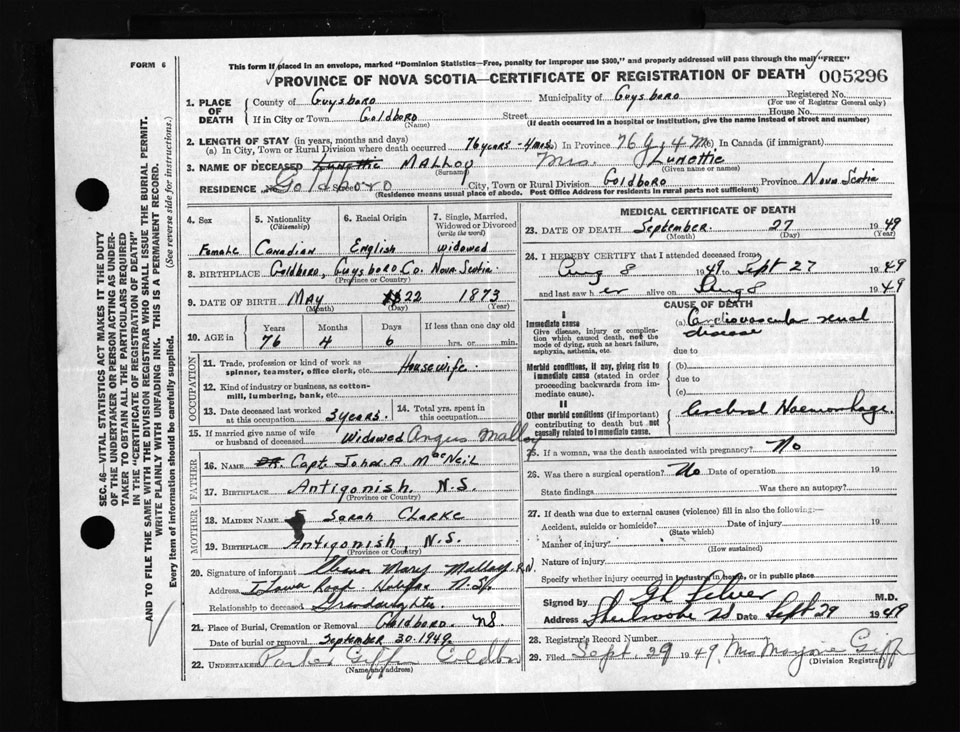 FORM 6
This form If placed in an envelope, marked "Dominion Statistics—Free, penalty for improper use $300," and properly addressed will pass through the mail "FREE"
PROVINCE OF NOVA SCOTIA—CERTIFICATE OF REGISTRATION OF DEATH 005296
1. PLACE OF DEATH
County of Guysboro Municipality of Guysboro Registered No.
(For use of Registrar General only)
If in City or Town Goldboro Street House No.
(Name) (If death occurred in a hospital or institution, give the name instead of street and number)
2. LENGTH OF STAY (in years, months and days)
(a) In City, Town or Rural Division where death occurred 76 years - 4 mos. in Province 76 y, 4 M In Canada (if immigrant)
3. NAME OF DECEASED Lunettie MALLOY Mrs. Lunettie
(Surname) (Given name or names)
RESIDENCE Goldboro City, Town or Rural Division Goldboro Province Nova Scotia
(Residence means usual place of abode. Post Office Address for residents in rural parts not sufficient)
4. Sex Female
5. Nationality (Citizenship) Canadian
6. Racial Origin English
7. Single, Married, Widowed or Divorced (write the word) Widowed
8. BIRTHPLACE Goldboro, Guysboro Co. Nova Scotia
(Province or Country)
9. DATE OF BIRTH May 22 1873
(Month) (Day) (Year)
10. AGE in Years Months Days If less than one day old
76 4 6 hrs. or min.
OCCUPATION
11. Trade, profession or kind of work as spinner, teamster, office clerk, etc. Housewife
12. Kind of industry or business, as cotton-mill, lumbering, bank, etc.
13. Date deceased last worked at this occupation 3 years.
14. Total yrs. spent in this occupation
15. If married give name of wife or husband of deceased Widowed Angus Malloy
FATHER
16. NAME Capt. John A. MacNeil
17. BIRTHPLACE Antigonish, N.S.
(Province or Country)
MOTHER
18. MAIDEN NAME Sarah Clarke
19. BIRTHPLACE Antigonish, N.S.
(Province or Country)
20. Signature of informant Mary Malloy R.N.
Address Road Halifax N.S.
Relationship to deceased Grandaughter
21. Place of Burial, Cremation or Removal Goldboro NS
Date of burial or removal September 30-1949
22. UNDERTAKER Parker Giffin Goldboro
(Name and address)
MEDICAL CERTIFICATE OF DEATH
23. DATE OF DEATH September 27 1949
(Month) (Day) (Year)
24. I HEREBY CERTIFY that I attended deceased from
Aug 8 1949 to Sept 27 1949
and last saw her alive on Aug 8 1949
CAUSE OF DEATH
I
Immediate cause
Give disease, injury or complication which caused death, not the mode of dying, such as heart failure, asphyxia, asthenia, etc.
(a) Cardiovascular renal disease
due to
Morbid conditions, if any, giving rise to immediate cause (stated in order proceeding backwards from immediate cause).
(b)
due to
(c)
II
Other morbid conditions (if important) contributing to death but not causally related to immediate cause.
Cerebral Haemorrhage.
25. If a woman, was the death associated with pregnancy? No
26. Was there a surgical operation? No Date of operation 19
State findings Was there an autopsy?
27. If death was due to external causes (violence) fill in also the following:—
Accident, suicide or homicide? Date of injury 19
(State which)
Manner of injury
(How sustained)
Nature of injury
Specify whether injury occurred in industry, in home, or in public place
Signed by M.D.
Address Sherbrooke NS Date Sept 29 1949
28. Registrar's Record Number
29. Filed Sept. 29 1949, Mrs Marjorie Giffin
(Division Registrar)
SEC. 46—VITAL STATISTICS ACT MAKES IT THE DUTY
OF THE UNDERTAKER OR PERSON ACTING AS UNDERTAKER
TO OBTAIN ALL THE PARTICULARS REQUIRED
IN THE "CERTIFICATE OF REGISTRATION OF DEATH"
AND TO FILE THE SAME WITH THE DIVISION REGISTRAR WHO SHALL ISSUE THE BURIAL PERMIT.
WRITE PLAINLY WITH UNFADING INK. THIS IS A PERMANENT RECORD.
Every Item of information should be carefully supplied. (See reverse side for instructions.)